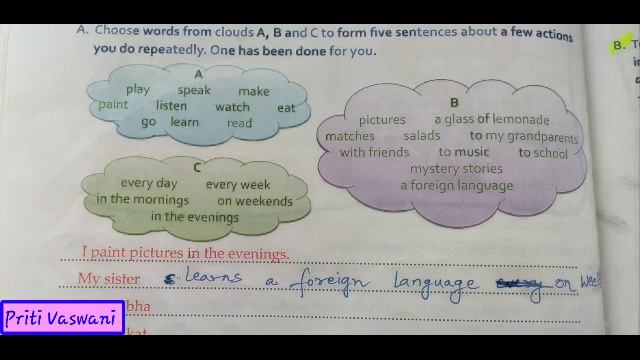 A. Choose words from clouds A, B and C to form five sentences about a few actions
you do repeatedly. One has been done for you.
B.
A
play speak make
paint listen watch eat
go learn read
B
pictures a glass of lemonade
matches salads to my grandparents
with friends to music to school
mystery stories
a foreign language
C
every day every week
in the mornings on weekends
in the evenings
I paint pictures in the evenings.
My sister learns a foreign language on
Priti Vaswani